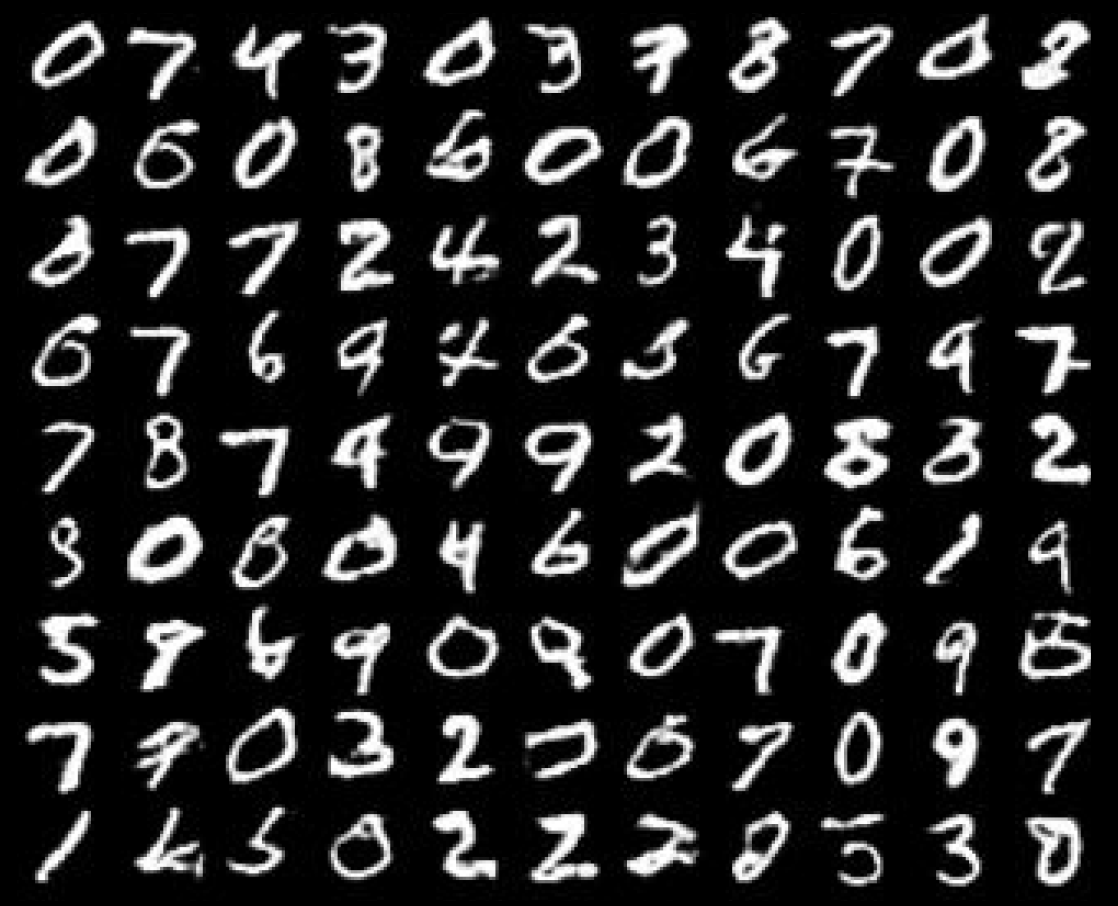 0 7 4 3 0 3 7 8 7 0 8
0 6 0 8 6 0 0 6 7 0 8
0 7 7 2 4 2 3 4 0 0 2
6 7 6 9 4 6 5 6 7 9 7
7 8 7 9 9 9 2 0 8 3 2
9 0 8 0 4 6 0 0 6 1 9
5 9 6 9 0 9 0 7 0 9 5
7 0 3 2 7 6 7 0 9 7
1 6 5 0 2 2 2 0 5 3 0